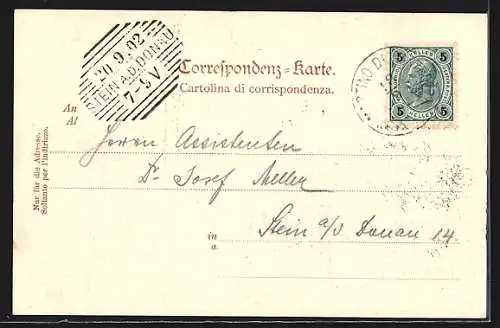 20.9.02
STEIN A.D. DONAU
7-9V
Correspondenz-Karte.
Cartolina di corrispondenza.
5 HELLER 5
5 HELLER 5
An
Al
Nur für die Adresse.
Soltanto per l'indirizzo.
Herrn Assistenten
Dr. Josef Meller
in
a
Stein a/d Donau 14.